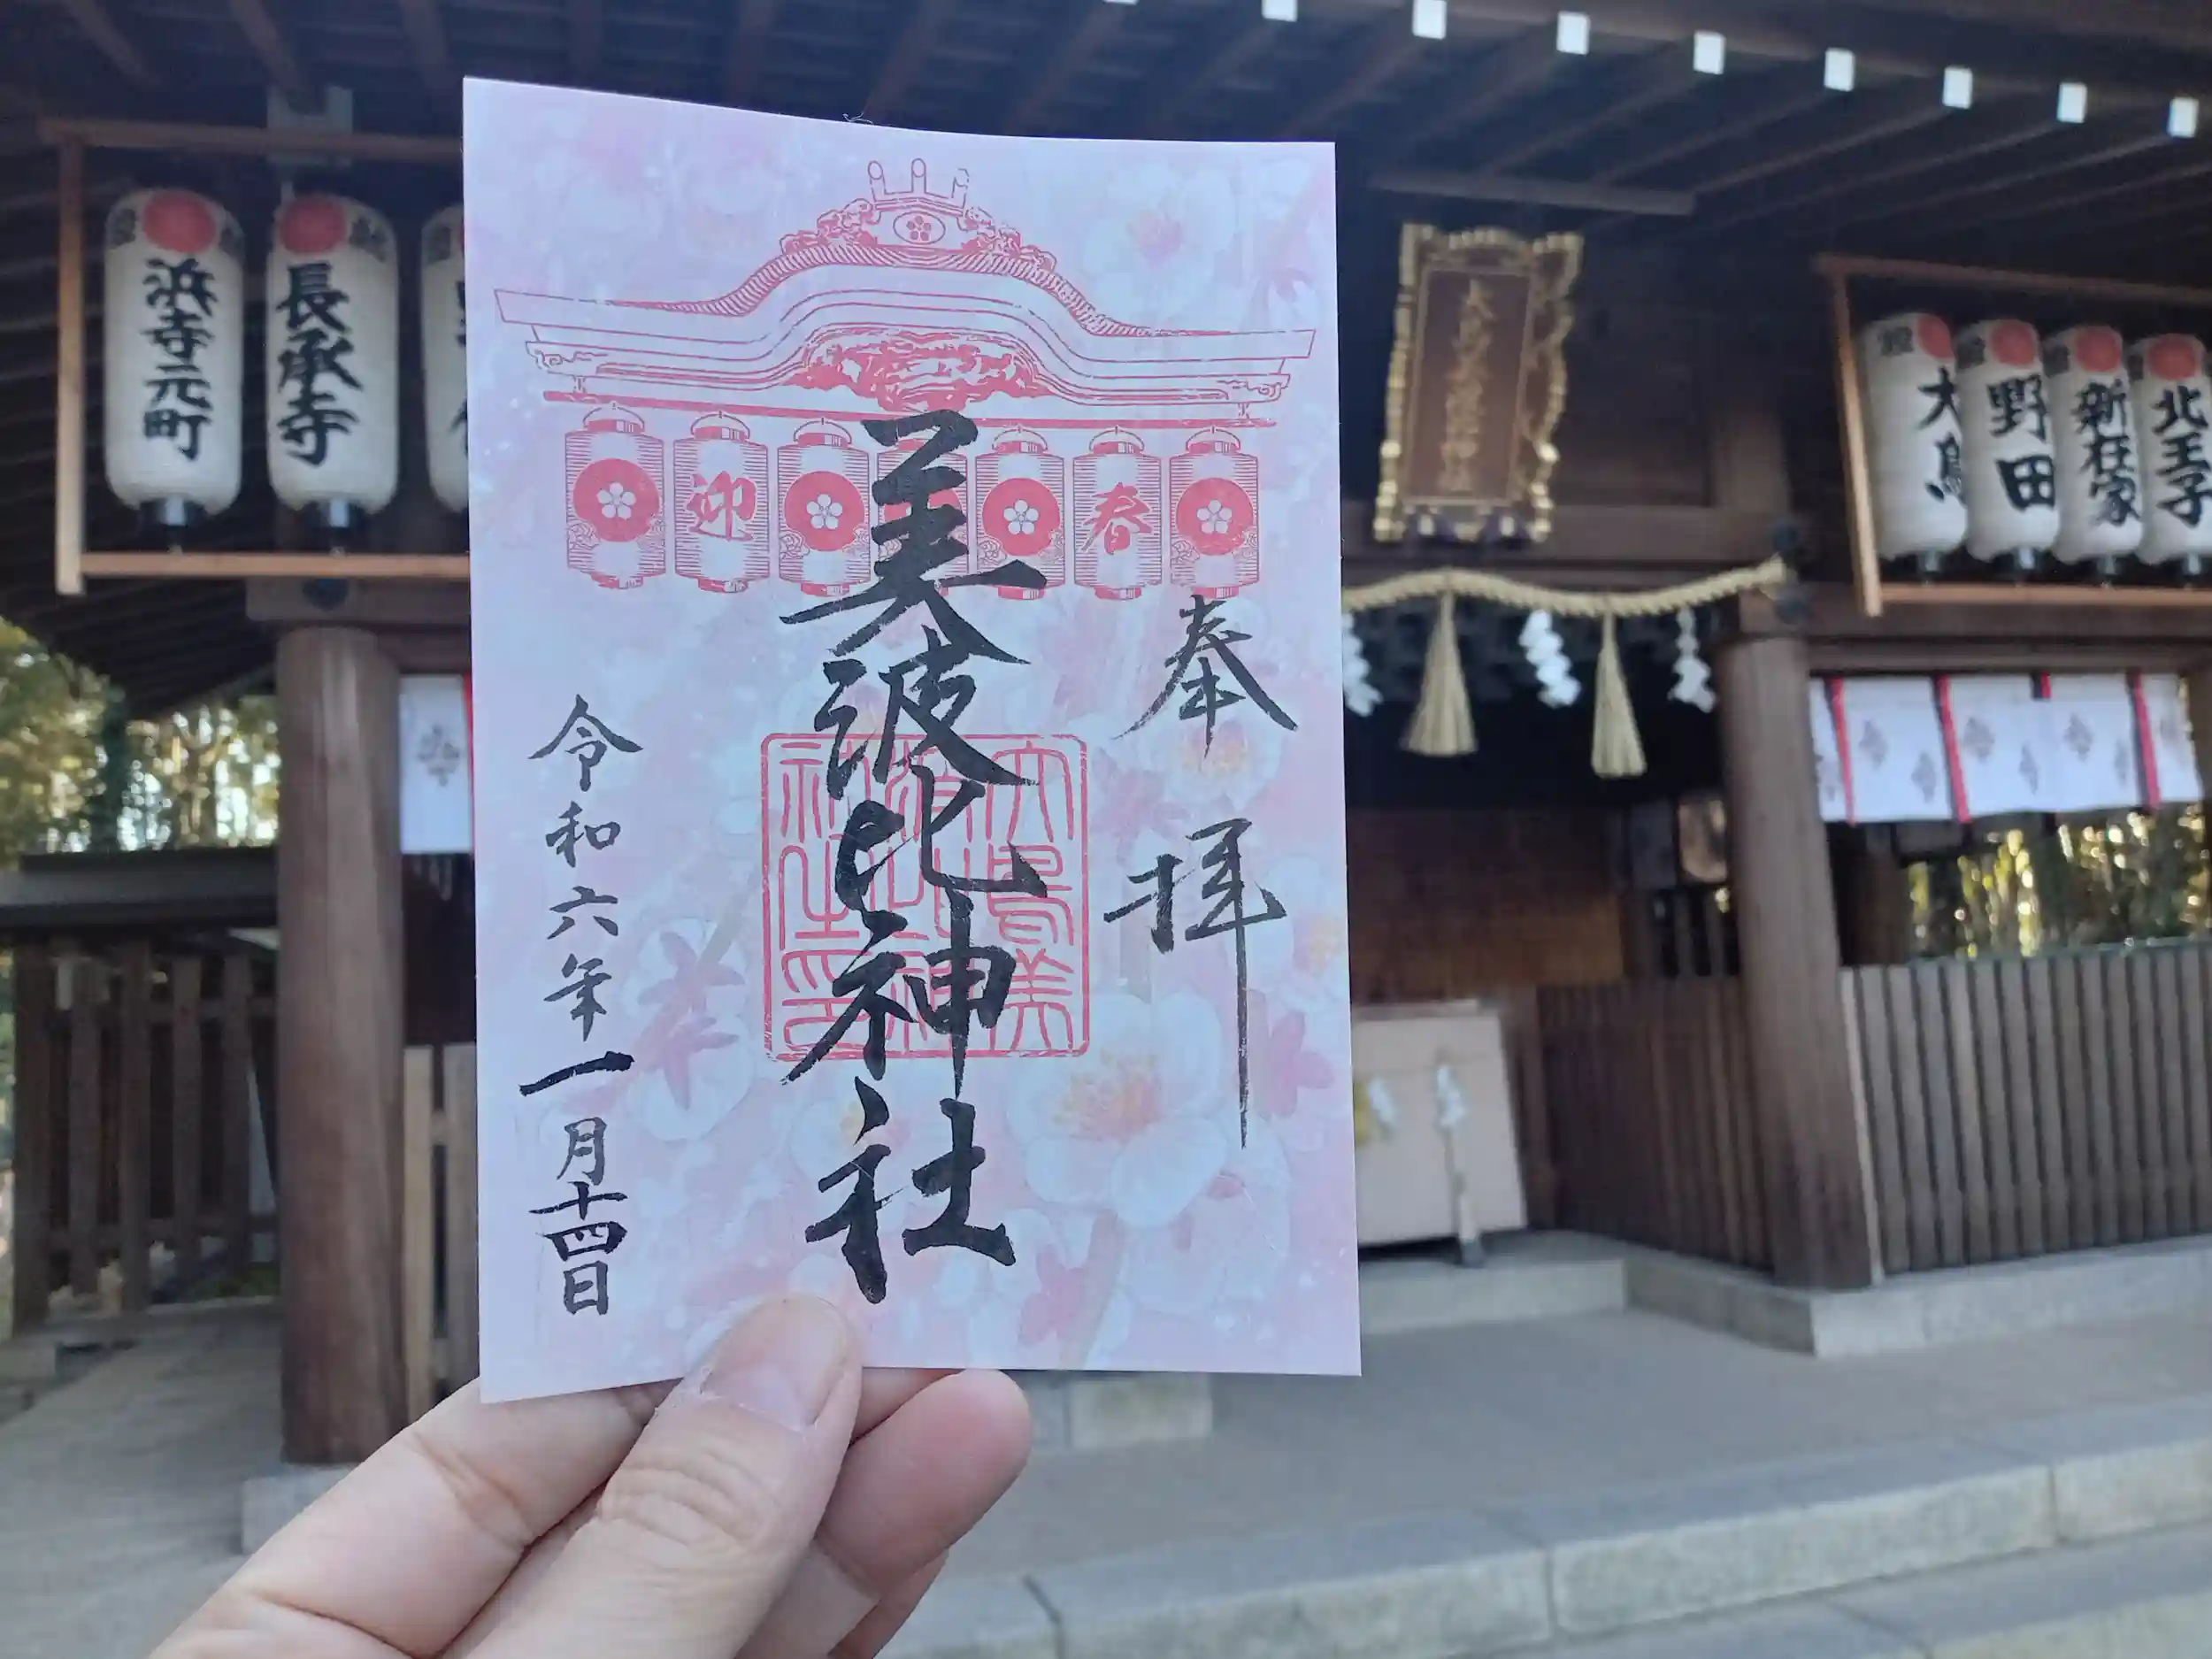 奉拝
美波比神社
令和六年一月十四日
迎
春
大鳥美
社之印
浜寺元町
長承寺
大鳥
野田
新在家
北王子